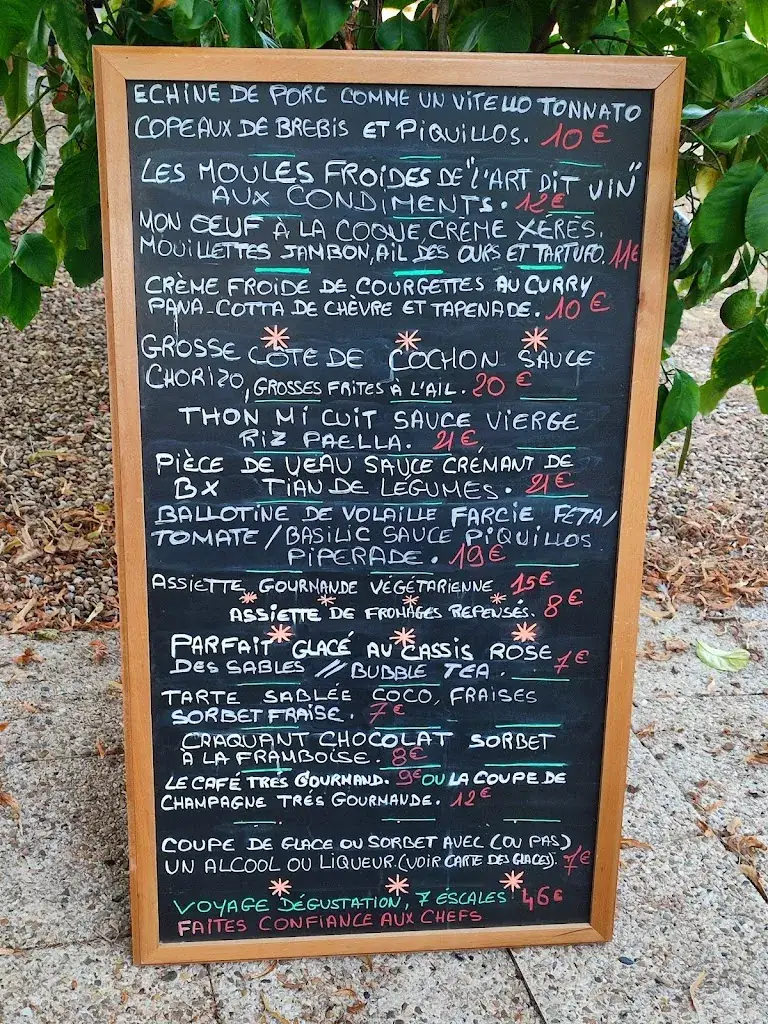 ECHINE DE PORC COMME UN VITELLO TONNATO
COPEAUX DE BREBIS ET PIQUILLOS. 10€
LES MOULES FROIDES DE "L'ART DIT VIN"
AUX CONDIMENTS. 12€
MON ŒUF À LA COQUE, CRÈME XÉRÈS.
MOUILLETTES JAMBON, AIL DES OURS ET TARTUFO. 11€
CRÈME FROIDE DE COURGETTES AU CURRY
PANA-COTTA DE CHÈVRE ET TAPENADE. 10€
GROSSE CÔTE DE COCHON SAUCE
CHORIZO, GROSSES FRITES À L'AIL. 20€
THON MI CUIT SAUCE VIERGE
RIZ PAELLA. 21€
PIÈCE DE VEAU SAUCE CRÉMANT DE
BX TIAN DE LÉGUMES. 21€
BALLOTINE DE VOLAILLE FARCIE FETA/
TOMATE/BASILIC SAUCE PIQUILLOS
PIPERADE. 19€
ASSIETTE GOURMANDE VÉGÉTARIENNE 15€
ASSIETTE DE FROMAGES REPENSÉS. 8€
PARFAIT GLACÉ AU CASSIS ROSE
DES SABLES // BUBBLE TEA. 7€
TARTE SABLÉE COCO, FRAISES
SORBET FRAISE. 7€
CRAQUANT CHOCOLAT SORBET
À LA FRAMBOISE. 8€
LE CAFÉ TRÉS GOURMAND. 9€ OU LA COUPE DE
CHAMPAGNE TRÉS GOURMANDE. 12€
COUPE DE GLACE OU SORBET AVEC (OU PAS)
UN ALCOOL OU LIQUEUR. (VOIR CARTE DES GLACES). 7€
VOYAGE DÉGUSTATION, 7 ÉSCALES 46€
FAITES CONFIANCE AUX CHEFS